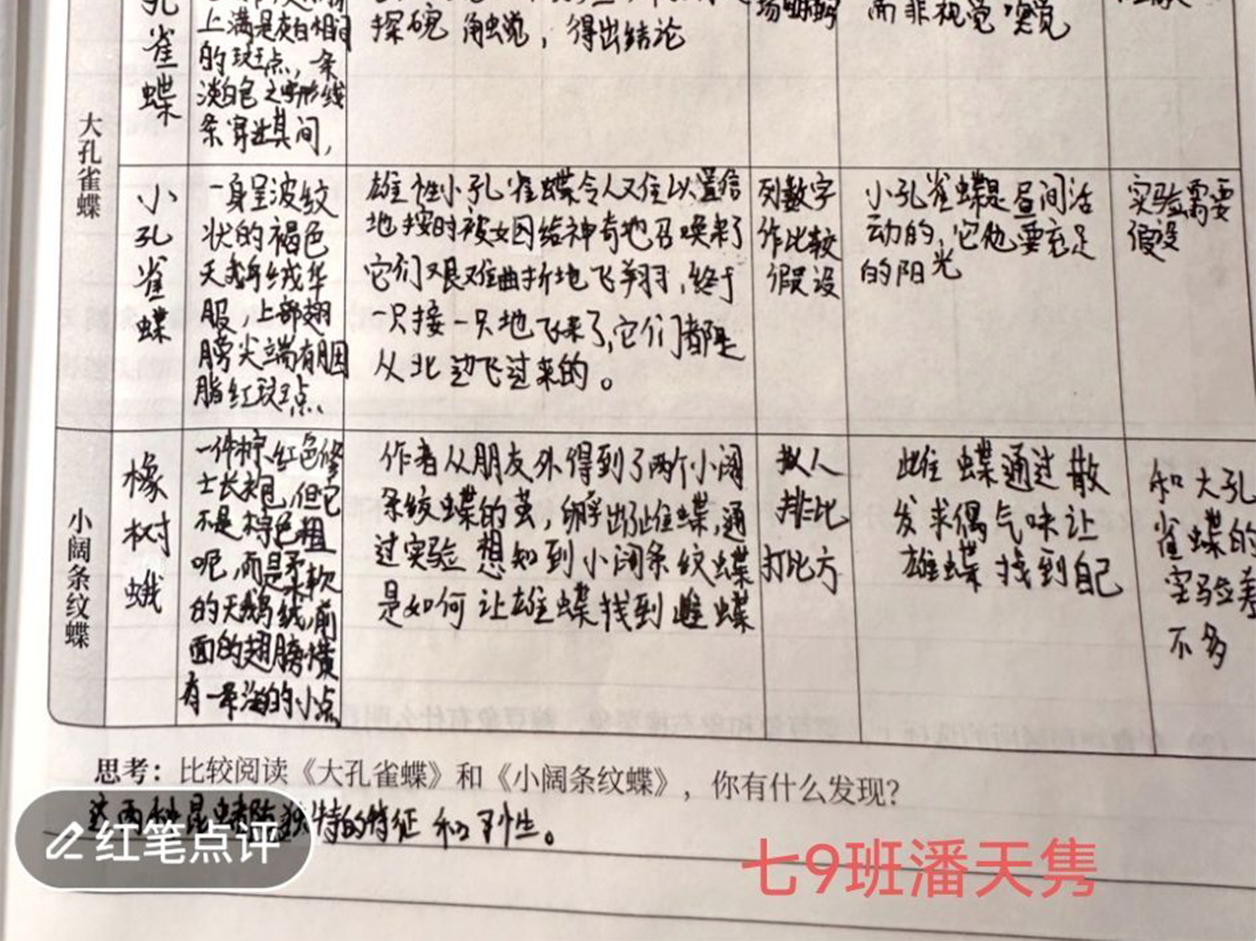 大孔雀蝶
孔雀蝶
上满是灰白相间
的斑点,一条
淡白色之字形线
条穿过其间,
探碗 触觉,得出结论
而非视觉 嗅觉
小孔雀蝶
一身呈波纹
状的褐色
天鹅绒华
服,上部翅
膀尖端有胭
脂红斑点
雄性小孔雀蝶令人难以置信
地按时被女囚给神奇地召唤来了
它们艰难曲折地飞翔着,终于
一只接一只地飞来了,它们都是
从北边飞过来的。
列数字
作比较
假设
小孔雀蝶是昼间活
动的,它他要充足
的阳光
实验需要
假设
小阔条纹蝶
橡树蛾
一件棕红色修
士长袍,但它
不是棕色粗
呢,而是柔软
的天鹅绒,前
面的翅膀横
有一条淡的小点
作者从朋友处得到了两个小阔
条纹蝶的茧,孵出雌蝶,通
过实验 想知到小阔条纹蝶
是如何让雄蝶找到雌蝶
拟人
排比
打比方
雌蝶通过散
发求偶气味让
雄蝶找到自己
和大孔
雀蝶的
实验差
不多
思考:比较阅读《大孔雀蝶》和《小阔条纹蝶》,你有什么发现?
这两种昆虫 独特的特征和习性。
红笔点评
七9班潘天隽